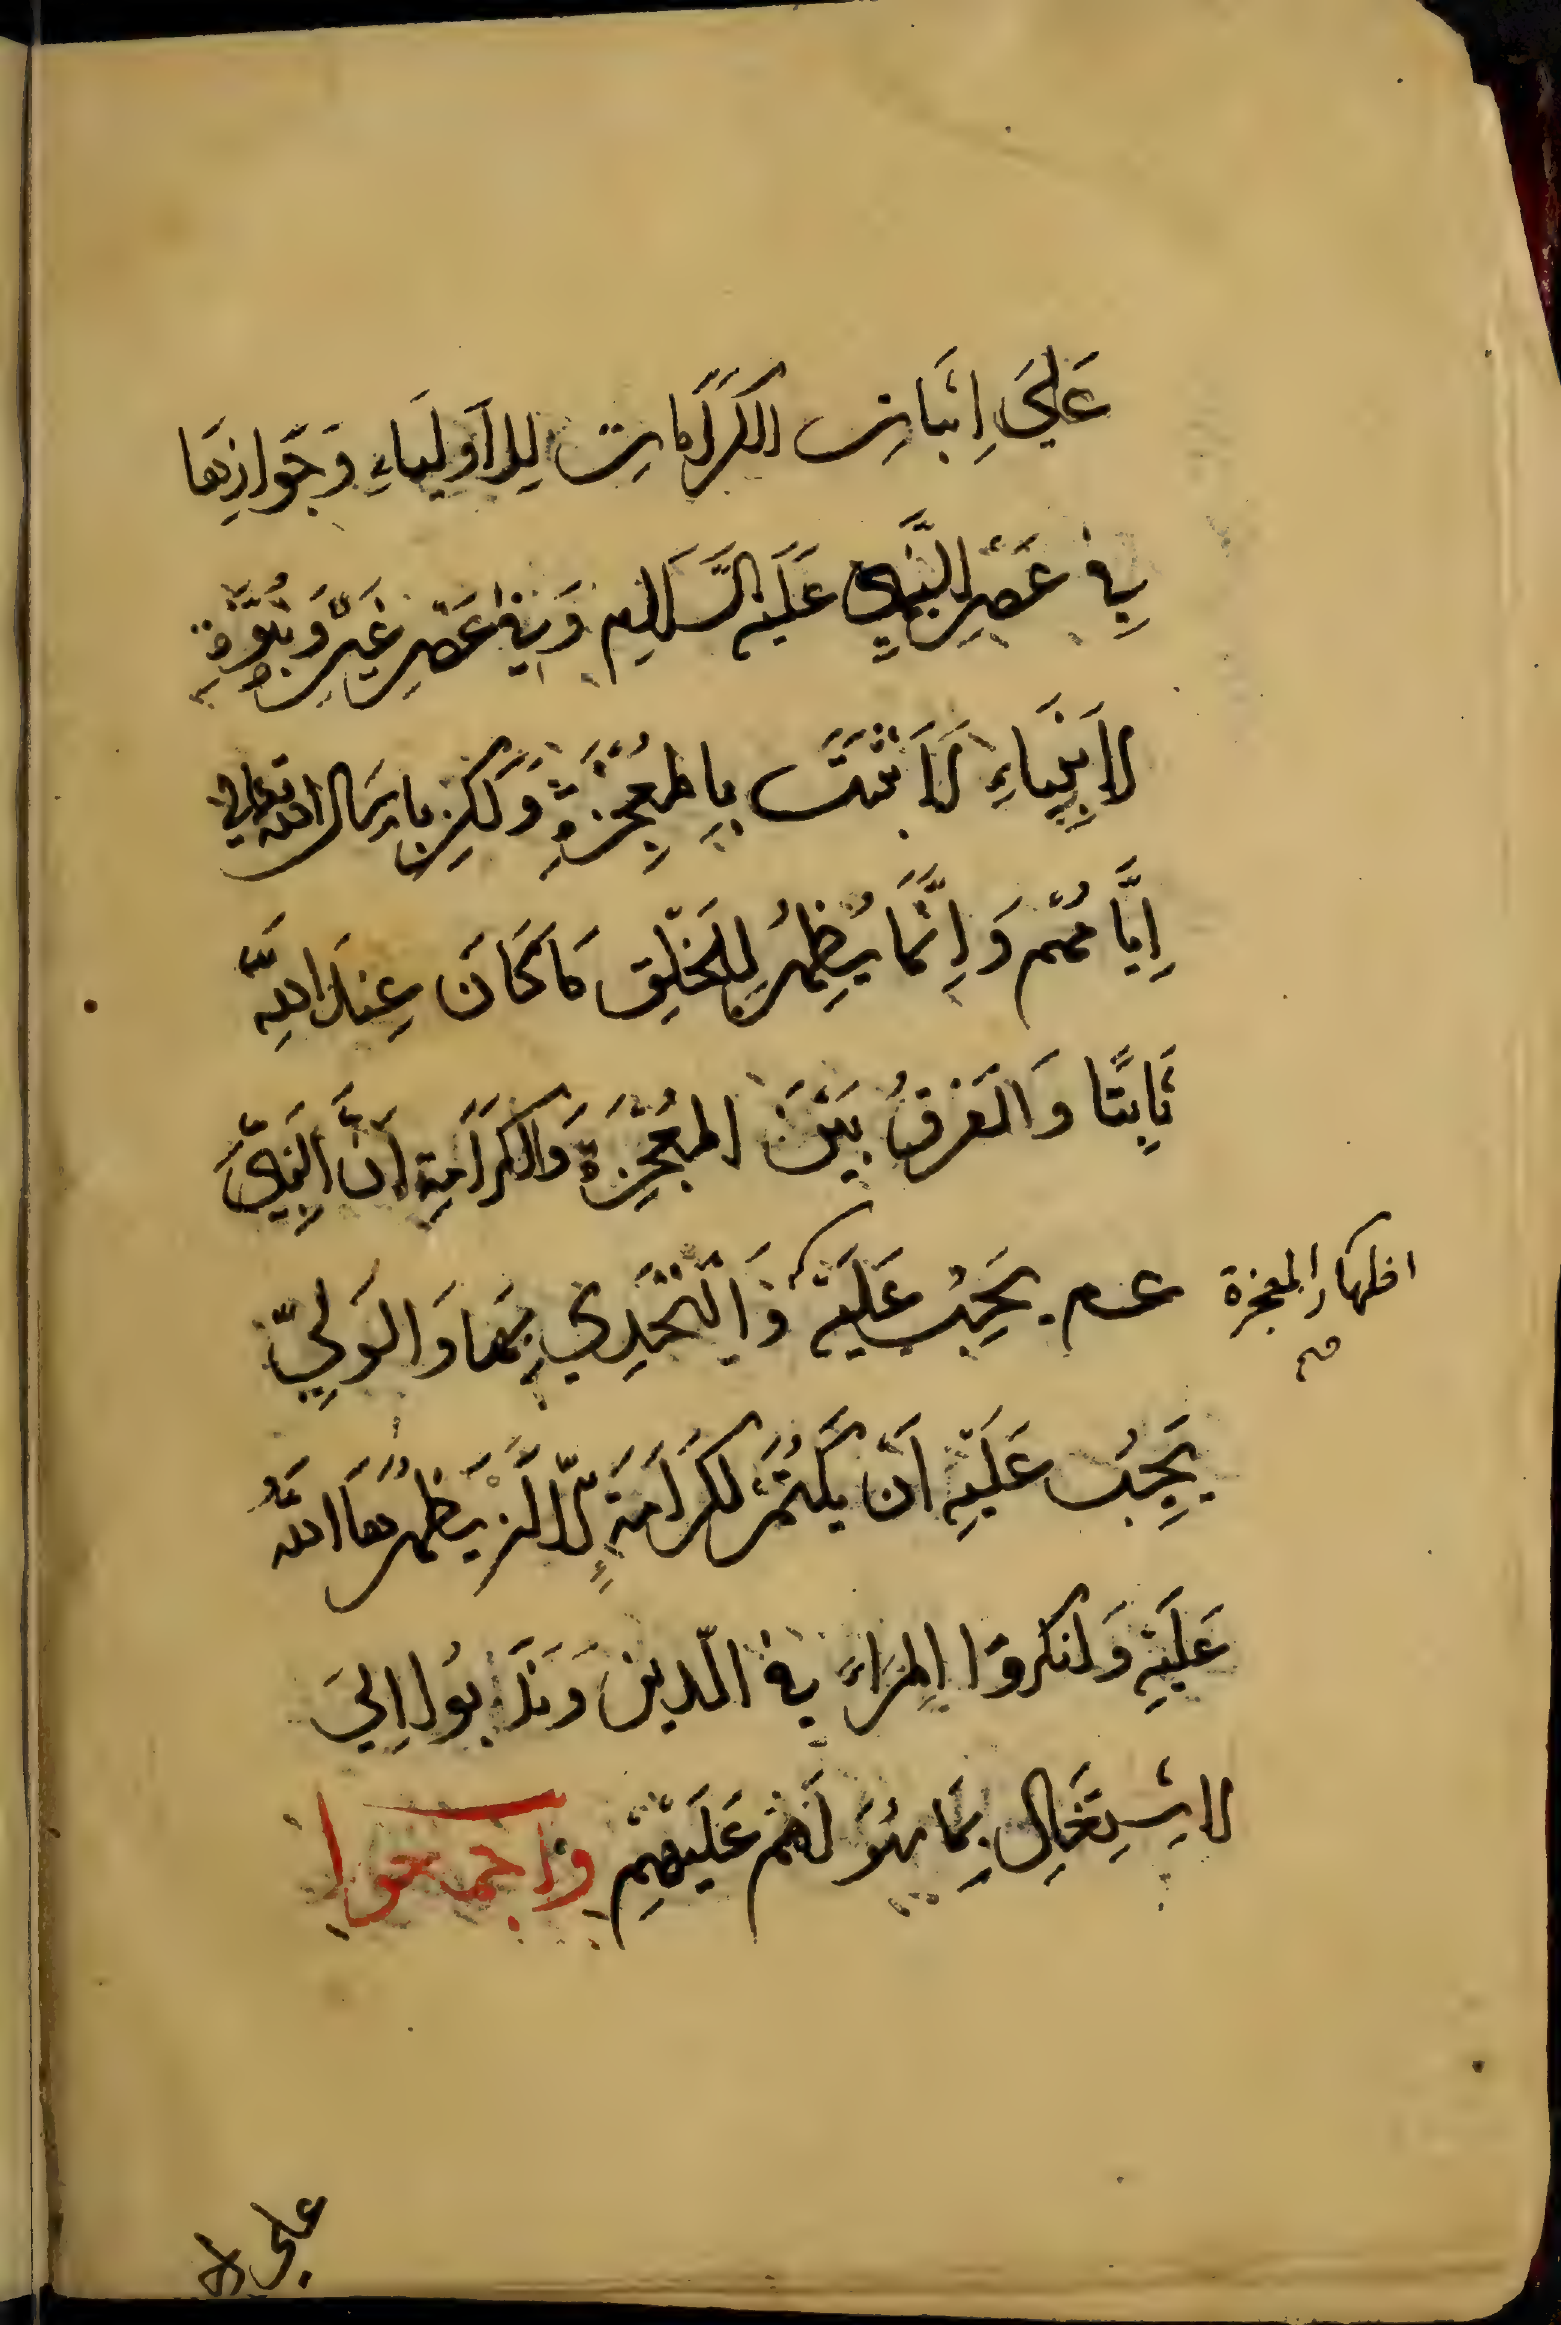 عَلَى اِثْبَاتِ الكَرَامَاتِ لِلاَوْلِيَاءِ وَجَوَازِهَا
فِى عَصْرِ النَّبِىِّ عَلَيْهِ السَّلَامِ وَفِى عَصْرِ غَيْرِهِ وَنُبُوَّةِ
الاَنْبِيَاءِ لَا تَثْبُتُ بِالمُعْجِزَةِ وَلَكِنْ بِاِرْسَالِ الله تعالى
اِيَّاهُمْ وَاِنَّمَا يُظْهِرُ لِلْخَلْقِ مَا كَانَ عِنْدَ اللَّهِ
ثَابِتًا وَالفَرْقُ بَيْنَ المُعْجِزَةِ وَالكَرَامَةِ اَنَّ النَّبِىَّ
عـم يَجِبُ عَلَيْهِ وَالتَّحَدِّي بِهَا وَالوَلِيّ
اظهار المعجزة
يَجِبُ عَلَيْهِ اَنْ يَكْتُمَ لكَرَامَةَ اِلَّا اَنْ يَظْهَرُهَا اللَّهُ
عَلَيْهِ وَانكَرُوا المِرَاءَ فِى الدّينِ وَنَدَبُوا اِلَى
الاِشْتِغَالِ بِمَا هُوَ لَهُمْ عَلَيْهِمْ وَاجمعوا
على ال